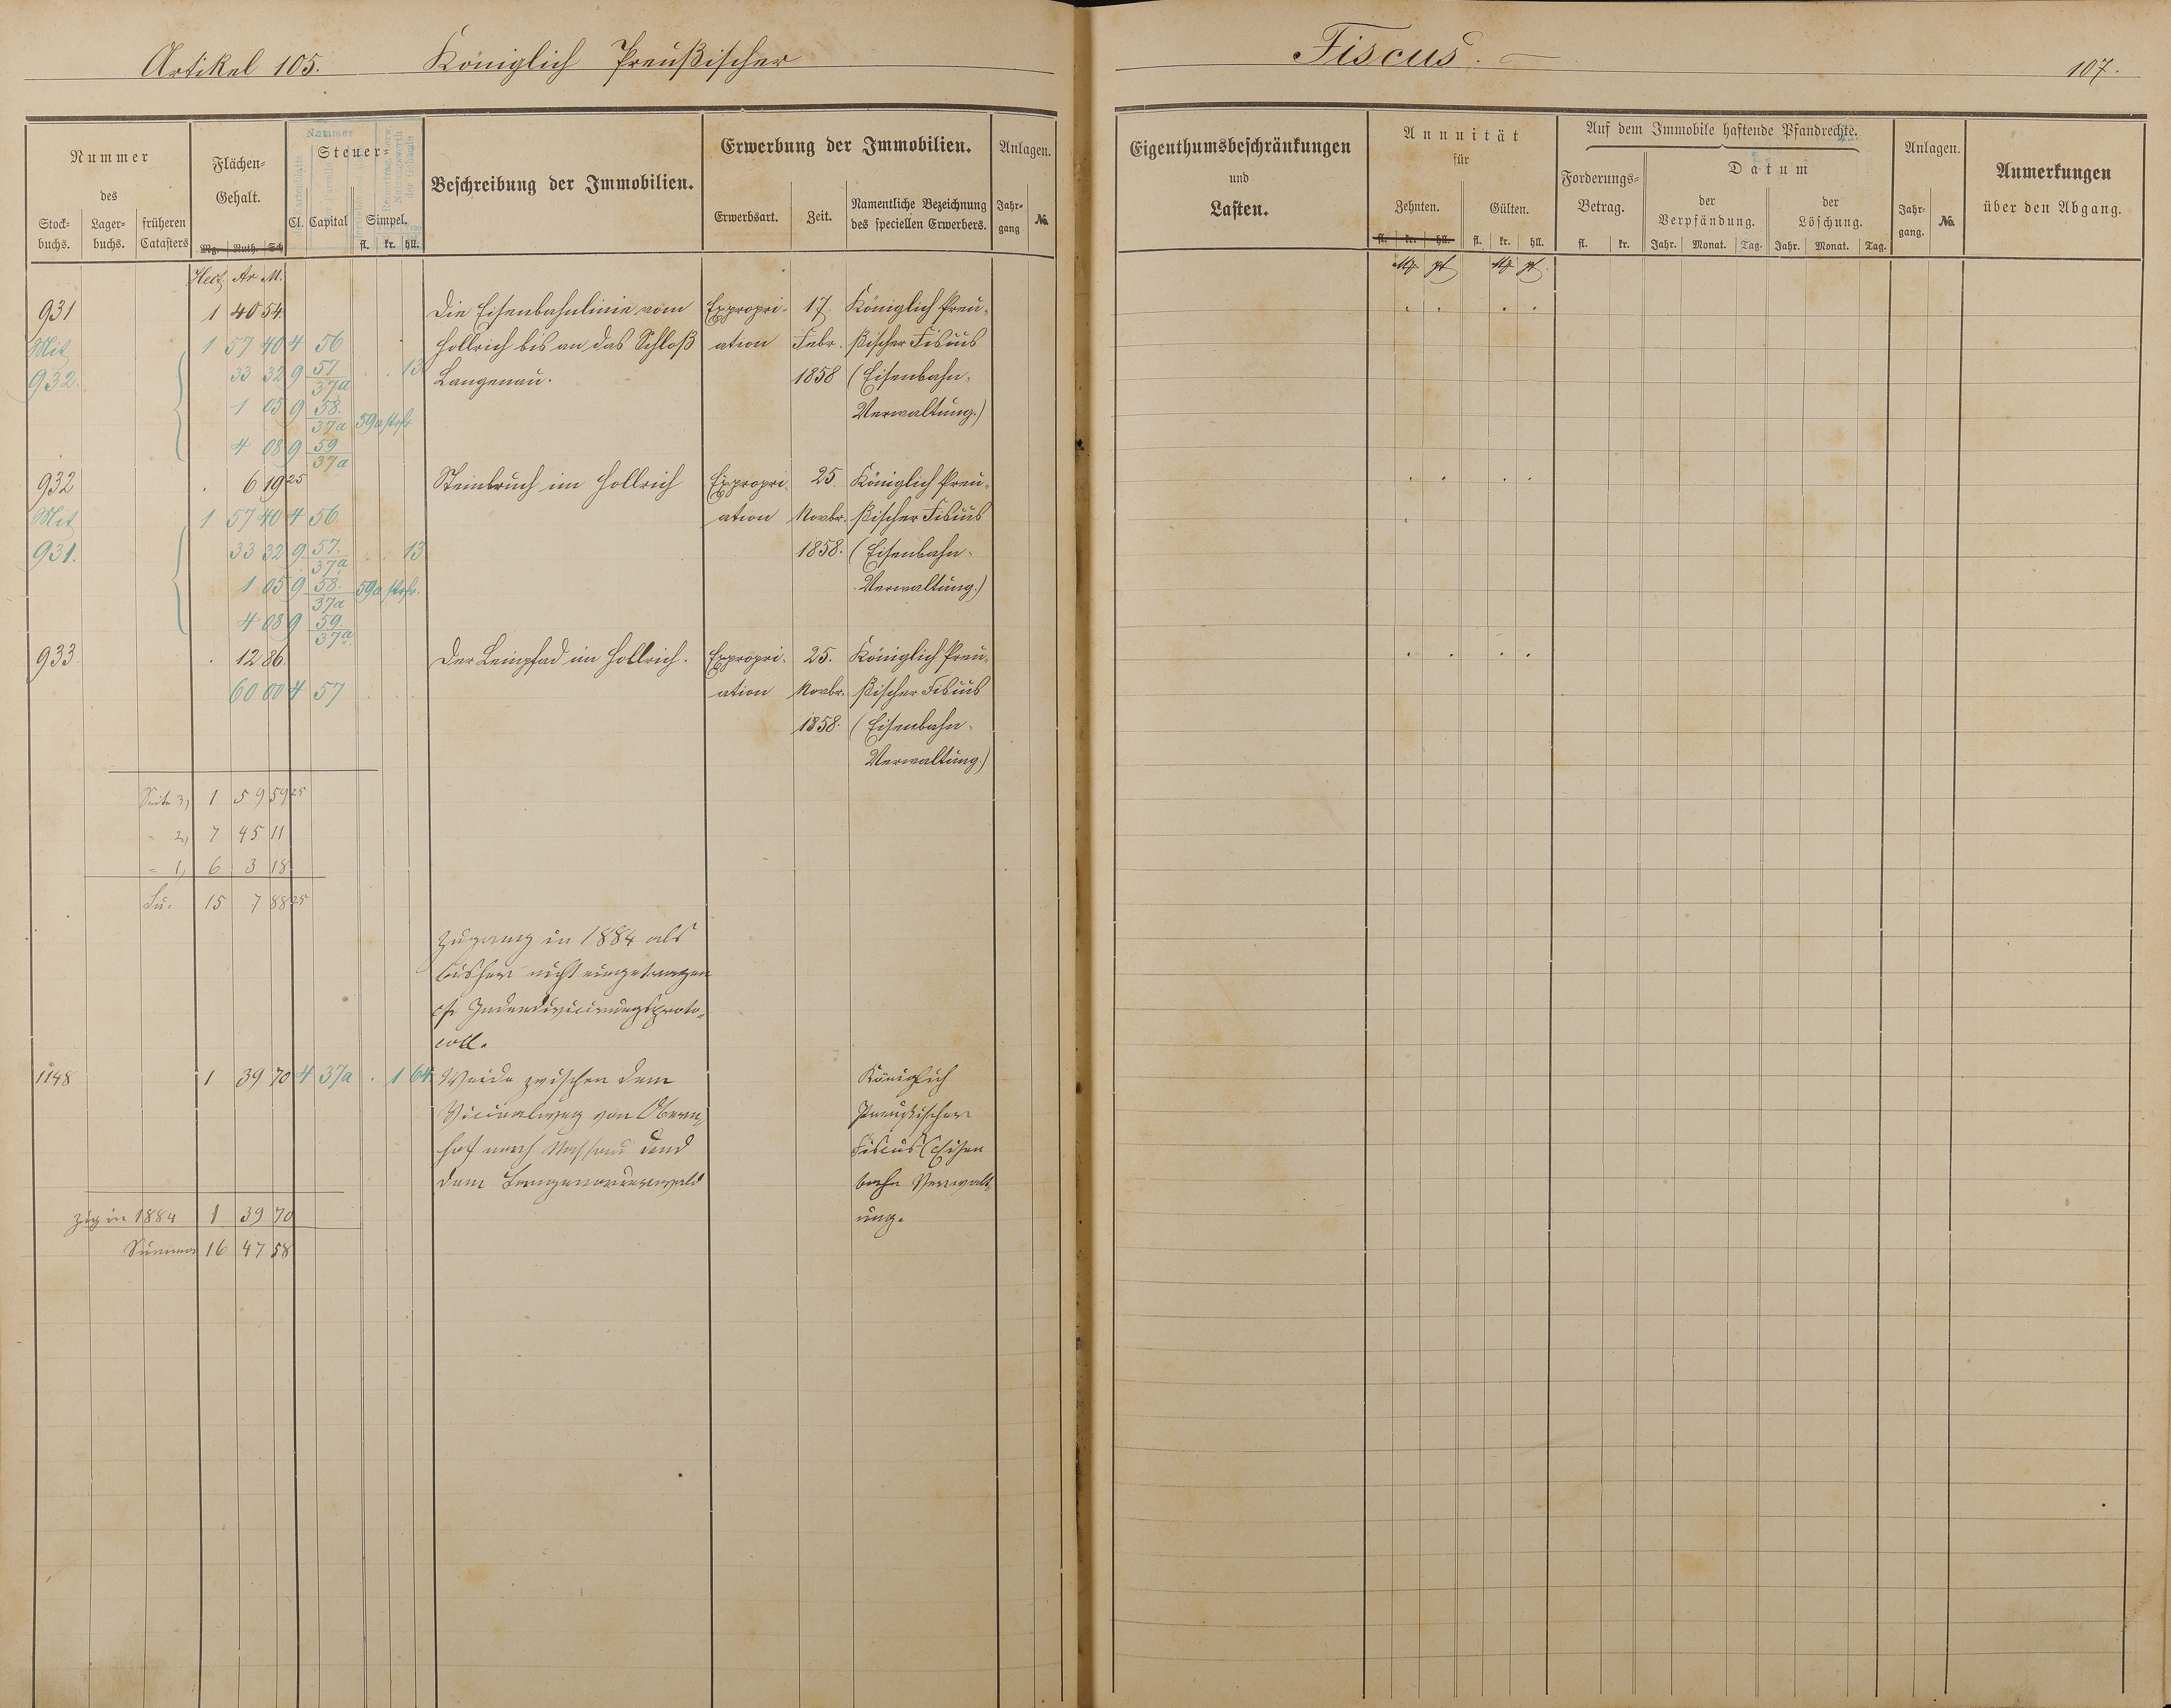 Artikel 105. Königlich Preußischer Fiscus. 107.
Nummer des
Stock-buchs. Lager-buchs. früheren Catasters
Flächen-Gehalt.
Mg. Ruth. Sch
Nummer
Steuer-
Cl. Capital Simpel.
fl. kr. hll.
Beschreibung der Immobilien.
Erwerbung der Immobilien.
Erwerbsart. Zeit. Namentliche Bezeichnung des speciellen Erwerbers.
Anlagen.
Jahr-gang No.
Eigenthumsbeschränkungen
und
Lasten.
Annuität
für
Zehnten. Gülten.
fl. kr. hll. fl. kr. hll.
Auf dem Immobile haftende Pfandrechte.
Forderungs-Betrag.
fl. kr.
Datum
der Verpfändung. der Löschung.
Jahr. Monat. Tag. Jahr. Monat. Tag.
Anlagen.
Jahr-gang. No.
Anmerkungen
über den Abgang.
Hect. Ar M.
931 1 40 54 Die Eisenbahnlinie vom Expropri- 17. Königlich Preu-
Mit 1 57 40 4 56 Hollrich bis an das Schloß ation Febr. ßischer Fiscus
932. 33 32 9 57/37a . . 13 Langenau. 1858 (Eisenbahn-
1 05 9 58./37a 59a strfr Verwaltung.)
4 08 9 59/37a
932 . 6 19 25 Steinbruch im Hollrich Expropri- 25. Königlich Preu-
Mit 1 57 40 4 56 ation Novbr. ßischer Fiscus
931. 33 32 9 57./37a . . 13 1858. (Eisenbahn-
1 05 9 58./37a 59a strfr. Verwaltung.)
4 08 9 59./37a
933 . 12 86. Der Leinpfad im Hollrich. Expropri- 25. Königlich Preu-
60 00 4 57 ation Novbr. ßischer Fiscus
1858. (Eisenbahn-
Verwaltung.)
Seite 3) 1 59 59 25
" 2) 7 45 11
" 1) 6 3 18
Su. 15 7 88 25
Zugang in 1884 als
bisher nicht eingetragen
cfr
coll.
1148 1 39 70 4 37a . 1 64 Weide zwischen dem Königlich
Vicinalweg von Obern- Preußischer
hof nach Nassau und Fiscus (Eisen
dem Langenauerwald bahn Verwalt-
Zug in 1884 1 39 70 ung.
Summa 16 47 58